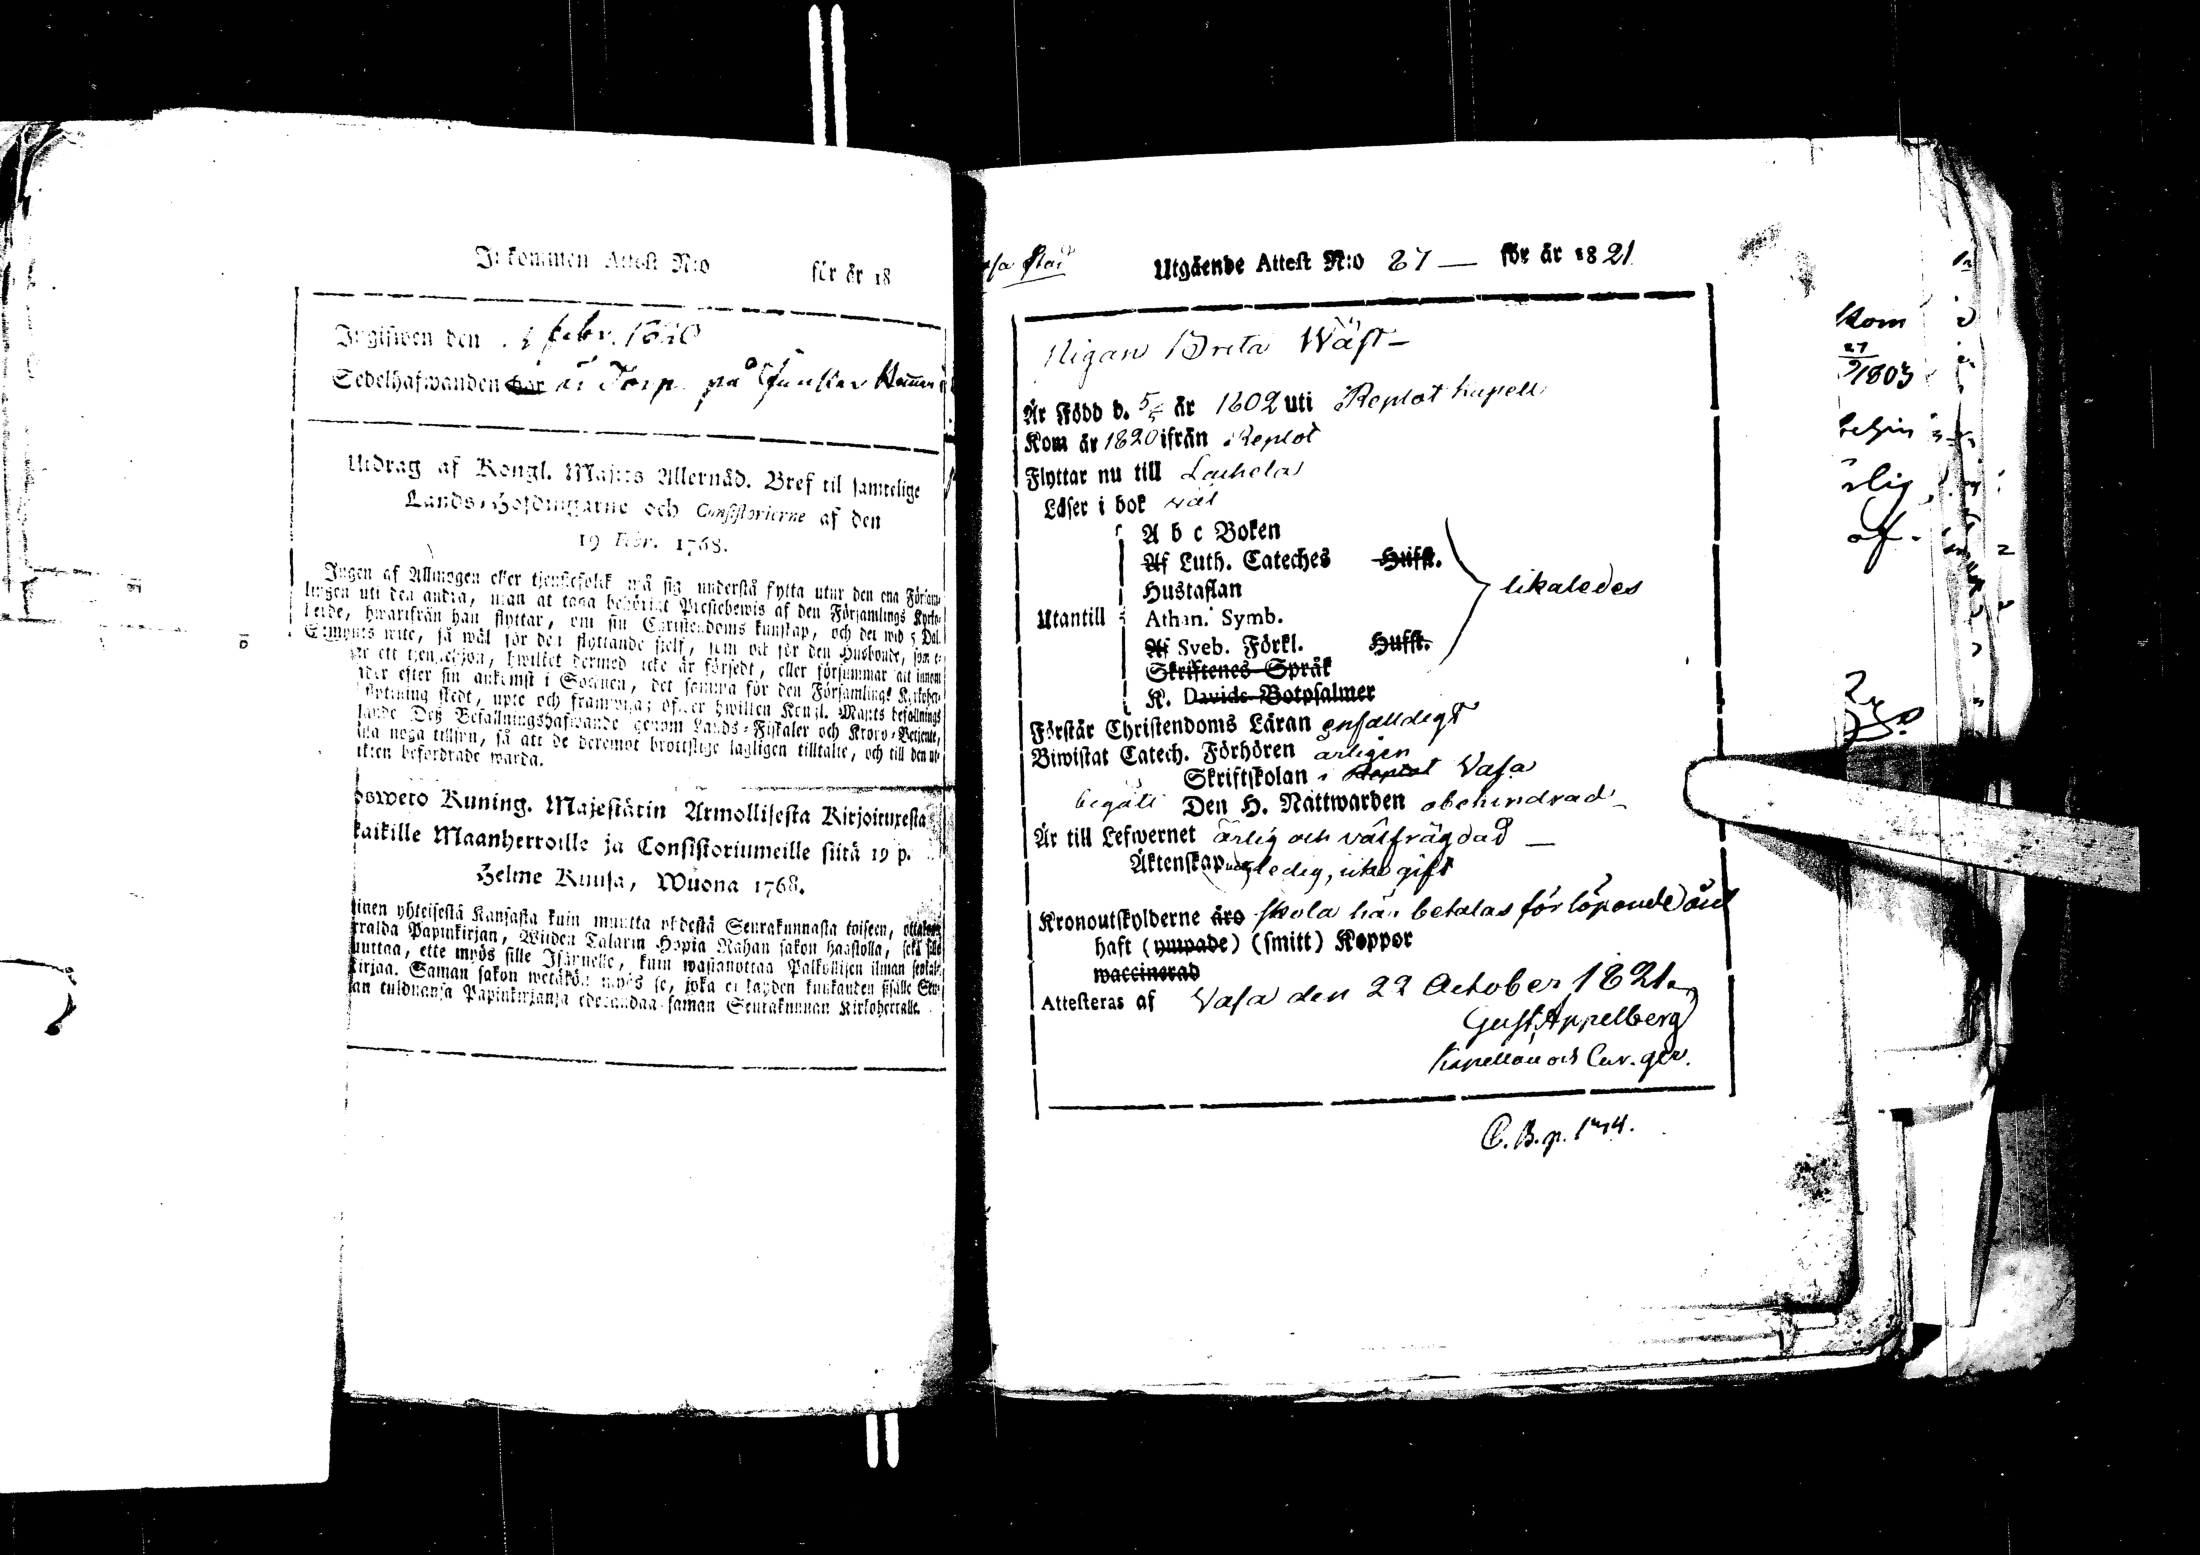 Inkommen Attest N:o för år 18
Ingifwen den febr. 1820
Sedelhafwanden har är Torp. på
Utdrag af Kongl. Maj:ts Allernåd. Bref til samtelige
Lands-Höfdingarne och Consistorierne af den
19 Febr. 1768.
Ingen af Allmogen eller tjenstefolck må sig understå flytta utur den ena Försam-
lingen uti den andra, utan at taga behörigt Prestebewis af den Församlings Kyrko-
herde, hwarifrån han flyttar, om sin Christendoms kunskap, och det wid 5 Dal.
S:mynts wite, så wäl för den flyttande sielf, som ock för den Husbonde, som
ett tjenstehjon, hwilket dermed icke är försedt, eller försummar att innom
efter sin ankomst i Socknen, det samma för den Församlings Kyrkoher-
flyttning skedt, upte och framwisa; öfwer hwilken Kongl. Maj:ts befallnings
Deß Befallningshafwande genom Lands-Fiskaler och Krono-Betjente,
noga tillsyn, så att de deremot brottslige lagligen tilltalte, och till den
befordrade warda.
Kuning. Majestätin Armollisesta Kirjoituxesta
kaikille Maanherroille ja Consistoriumeille siitä 19 p.
Helme Kuusa, Wuona 1768.
yhteisestä Kansasta kuin muutta yhdestä Seurakunnasta toiseen, ottamata
Papinkirjan, Wiiden Talarin Hopia Rahan sakon haastolla, sekä sille
muuttaa, ette myös sille Isännelle, kuin wastanottaa Palkollisen ilman
kirjaa. Saman sakon wetäkön myös se, joka ei kahden kuukauden sisälle
tulduansa Papinkirjansa edesandaa saman Seurakunnan Kirkoherralle.
Utgående Attest N:o 87 — för år 1821
Pigan Brita Wäst-
Är Född d. 5/ år 1802 uti Replot kapell
Kom år 1820 ifrån Replot
Flyttar nu till Laihela
Läser i bok wäl
A b c Boken
Af Luth. Cateches Hufst.
Hustaflan
Utantill Athan. Symb. likaledes
Af Sveb. Förkl. Hufst.
Skriftenes Språk
K. Davids Botpsalmer
Förstår Christendoms Läran enfalldigt
Biwistat Catech. Förhören årligen
Skriftskolan i Replot Vasa
begått Den H. Nattwarden obehindrad
Är till Lefwernet ärlig och välfrägdad —
Äktenskap ledig, icke gift
Kronoutskylderne äro skola här betalas för löpande året
haft (ympade) (smitt) Koppor
waccinerad
Attesteras af Vasa den 22 October 1821.
Gust. Appelberg
Kapellan och Cur. ger.
C. B. p. 144.
Kom
27
1803